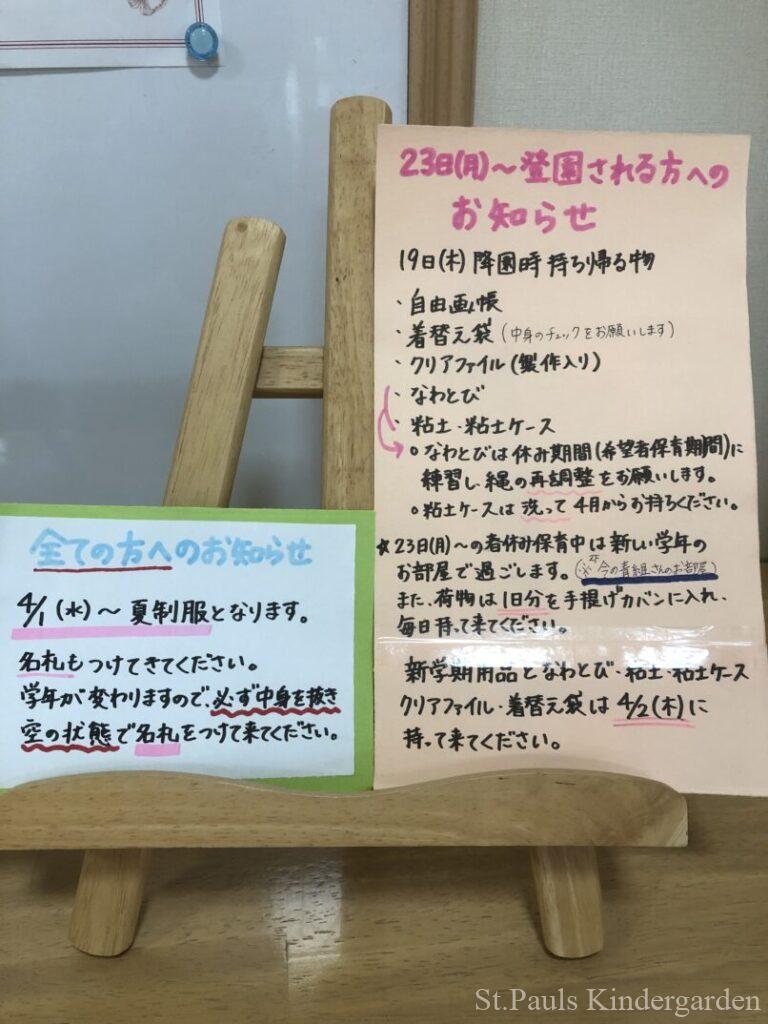 23日(月)〜登園される方への
お知らせ
19日(木)降園時持ち帰る物
・自由画帳
・着替え袋(中身のチェックをお願いします)
・クリアファイル(製作入り)
・なわとび
・粘土・粘土ケース
○なわとびは休み期間(希望者保育期間)に
練習し、縄の再調整をお願いします。
○粘土ケースは洗って4月からお持ちください。
★23日(月)〜の春休み保育中は新しい学年の
お部屋で過ごします。(※今の青組さんのお部屋)
また、荷物は1日分を手提げカバンに入れ、
毎日持って来てください。
新学期用品となわとび・粘土・粘土ケース
クリアファイル・着替え袋は4/2(木)に
持って来てください。
全ての方へのお知らせ
4/1(水)〜夏制服となります。
名札もつけてきてください。
学年が変わりますので、必ず中身を抜き
空の状態で名札をつけて来てください。
St.Pauls Kindergarden